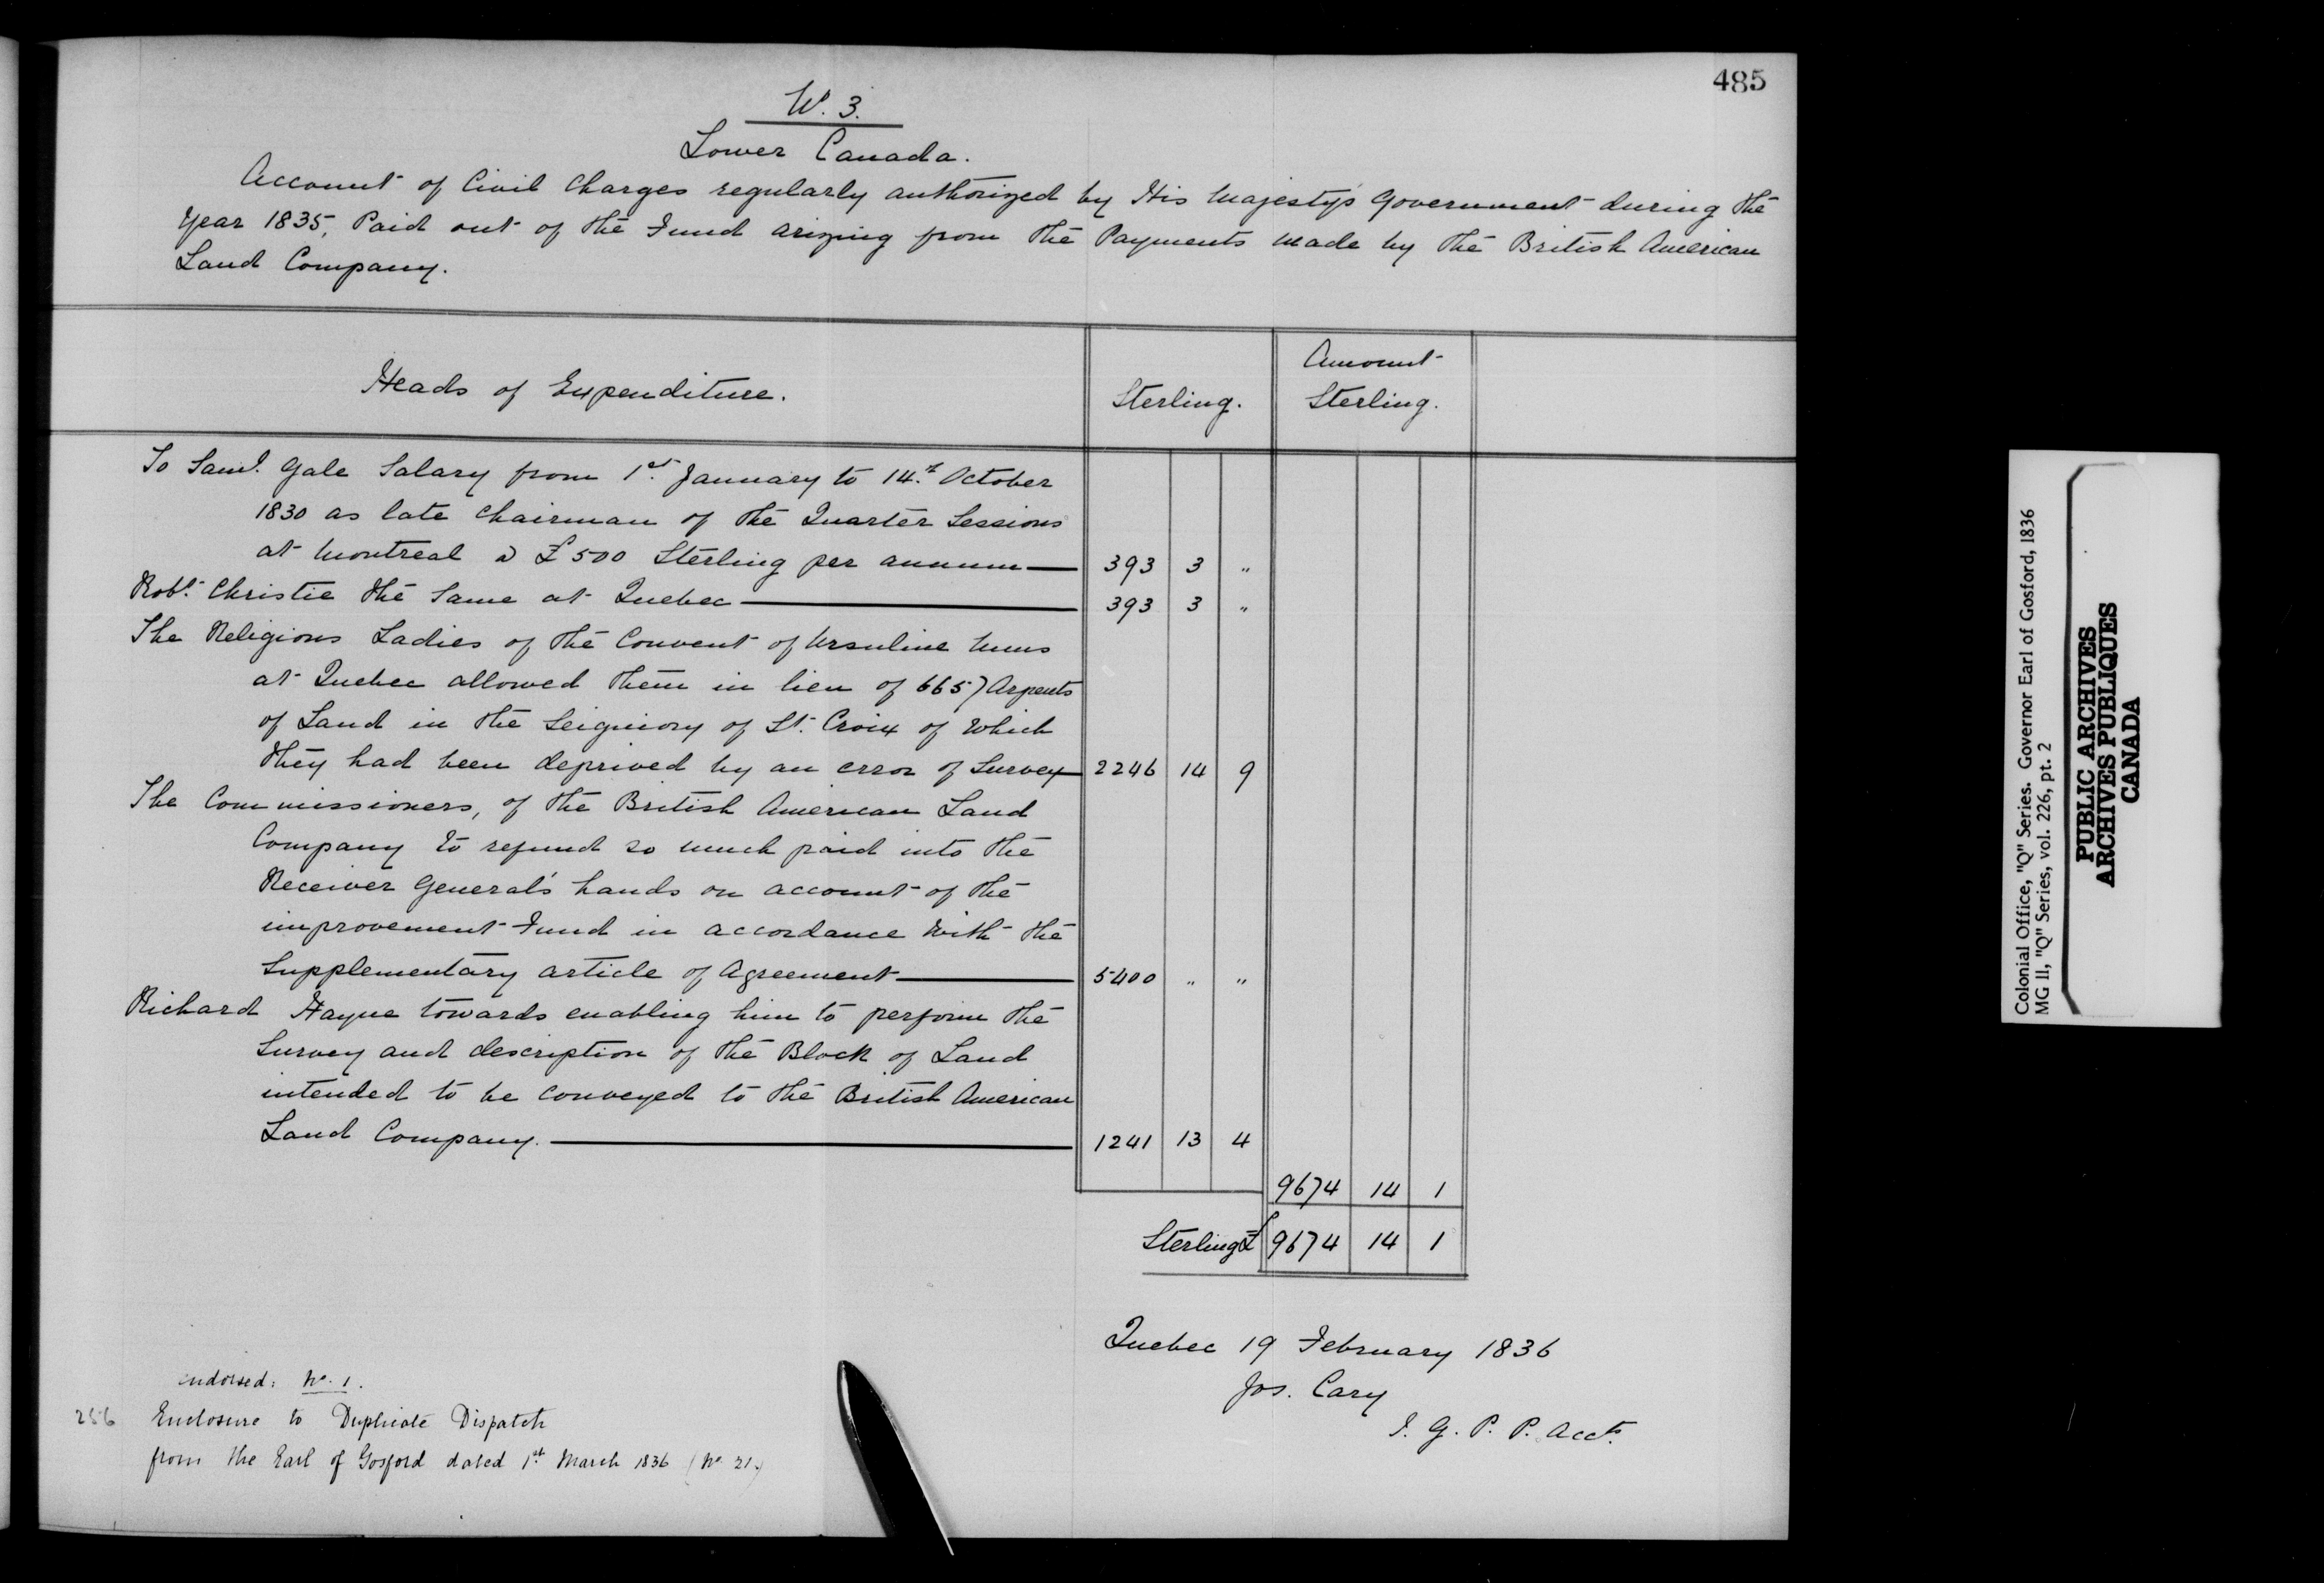 485
W. 3.
Lower Canada.
Account of Civil Charges regularly authorized by His Majesty's Government during the
Year 1835, Paid out of the Fund arizing from the Payments made by the British American
Land Company.
Heads of Expenditure. Sterling. Amount Sterling.
To Saml. Gale Salary from 1st. January to 14.th October
1830 as late Chairman of the Quarter Sessions
at Montreal a £500 Sterling per annum — 393 3 "
Robt. Christie the Same at Quebec — 393 3 "
The Religious Ladies of the Convent of Ursuline Nuns
at Quebec allowed them in lieu of 6657 Arpents
of Land in the Seigniory of St. Croix of which
they had been deprived by an error of Survey — 2246 14 9
The Commissioners, of the British American Land
Company to refund so much paid into the
Receiver General's hands on account of the
improvement Fund in accordance with the
Supplementary article of Agreement — 5400 " "
Richard Hayne towards enabling him to perform the
Survey and description of the Block of Land
intended to be conveyed to the British American
Land Company. — 1241 13 4
9674 14 1
Sterling £ 9674 14 1
Quebec 19 February 1836
Jos. Cary
I. G. P. P. Accts.
endorsed: No. 1.
256 Enclosure to Duplicate Dispatch
from the Earl of Gosford dated 1st March 1836 (No 21.)
Colonial Office, "Q" Series. Governor Earl of Gosford, 1836
MG II, "Q" Series, vol. 226, pt. 2
PUBLIC ARCHIVES
ARCHIVES PUBLIQUES
CANADA